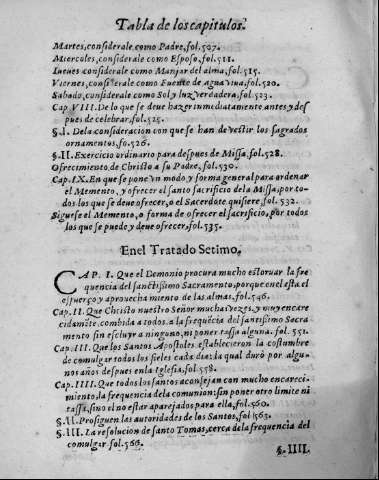 Tabla de los capitulos.
Martes, considerale como Padre, fol. 507.
Miercoles, considerale como Esposo, fol. 511.
Iueues considerale como Manjar del alma, fol. 515.
Viernes, considerale como Fuente de agua viua, fol. 520.
Sabado, considerale como Sol y luz verdadera, fol. 523.
Cap. VIII. De lo que se deue hazer inmediatamente antes, y des
pues de celebrar, fol. 525.
§. I. De la consideracion con que se han de vestir los sagrados
ornamentos, fo. 526.
§. II. Exercicio ordinario para despues de Missa, fol. 528.
Ofrecimiento de Christo a su Padre, fol. 530.
Cap. IX. En que se pone vn modo y forma general para ordenar
el Memento, y ofrecer el santo sacrificio de la Missa, por to-
dos los que se deue ofrecer, o el Sacerdote quisiere, fol. 532.
Siguese el Memento, o forma de ofrecer el sacrificio, por todos
los que se puede y deue ofrecer, fol. 535.
En el Tratado Setimo.
CAP. I. Que el Demonio procura mucho estoruar la fre
quencia del sanctissimo Sacramento, porque en el esta el
esfuerço y aprouechamiento de las almas, fol. 546.
Cap. II. Que Christo nuestro Señor muchas vezes, y muy encare
cidamẽte, combida a todos a la frequẽcia del santissimo Sacra
mento sin escluyr a ninguno, ni poner tassa alguna. fol. 551.
Cap. III. Que los Santos Apostoles establecieron la costumbre
de comulgar todos los fieles cada dia; la qual durò por algu-
nos años despues en la Iglesia, fol. 558.
Cap. IIII. Que todos los santos aconsejan con mucho encareci-
miento, la frequencia de la comunion: sin poner otro limite ni
tassa, sino el no estar aparejados para ella, fol. 560.
§. II. Prosiguen las autoridades de los Santos, fol 563.
§. III. La resolucion de santo Tomas, cerca de la frequencia del
comulgar. fol. 566.
§. IIII.